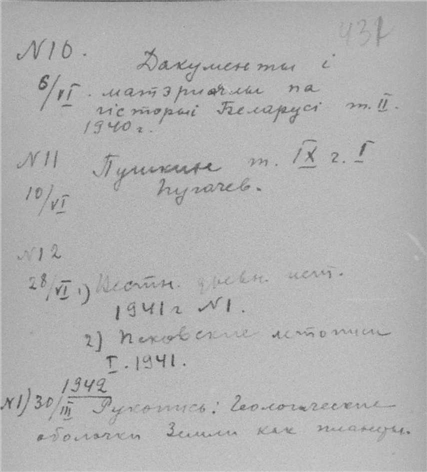 431
N 10. Дакументы і
6/VI. матэриалы па
гісторыі Беларусі т. II.
1940 г.
N 11 Пушкин т. IX ч. I
10/VI Пугачев.
N 12
28/VI 1) Вестн. древн. ист.
1941 г N 1.
2) Псковские летописи
I. 1941.
1942
N 1) 30/III Рукопись: Геологические
оболочки Земли как планеты.